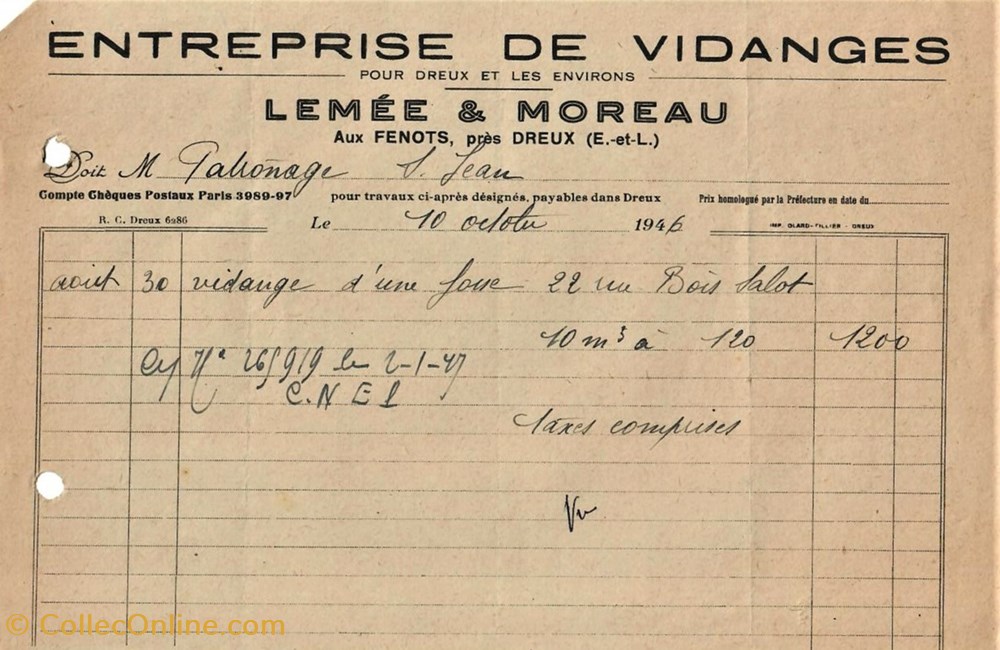 ENTREPRISE DE VIDANGES
POUR DREUX ET LES ENVIRONS
LEMÉE & MOREAU
Aux FENOTS, près DREUX (E.-et-L.)
Doit M Patronage S. Jean
Compte Chèques Postaux Paris 3989-97 pour travaux ci-après désignés, payables dans Dreux Prix homologué par la Préfecture en date du
R. C. Dreux 6286 Le 10 octobre 1946
IMP. OLARD-TILLIER - DREUX
août 30 vidange d'une fosse 22 rue Bois Salot
10 m³ à 120 1200
N° 265919 le 2-1-47
C.N.E.P
taxes comprises
Vu
© CollecOnline.com